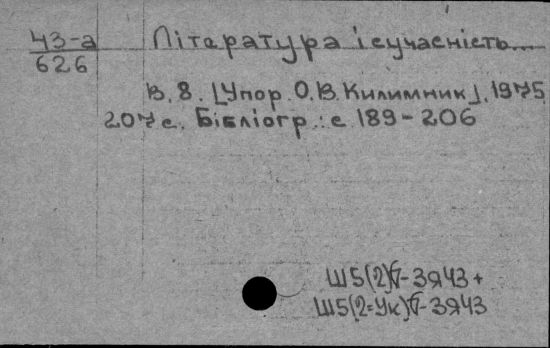 43-а Література і сучасність...
626
В. 8. [Упор. О.В. Килимник]. 1975
207 с. Бібліогр.: с 189-206
Ш5(2)7-3Я43 +
Ш5(2=Ук)7-3Я43